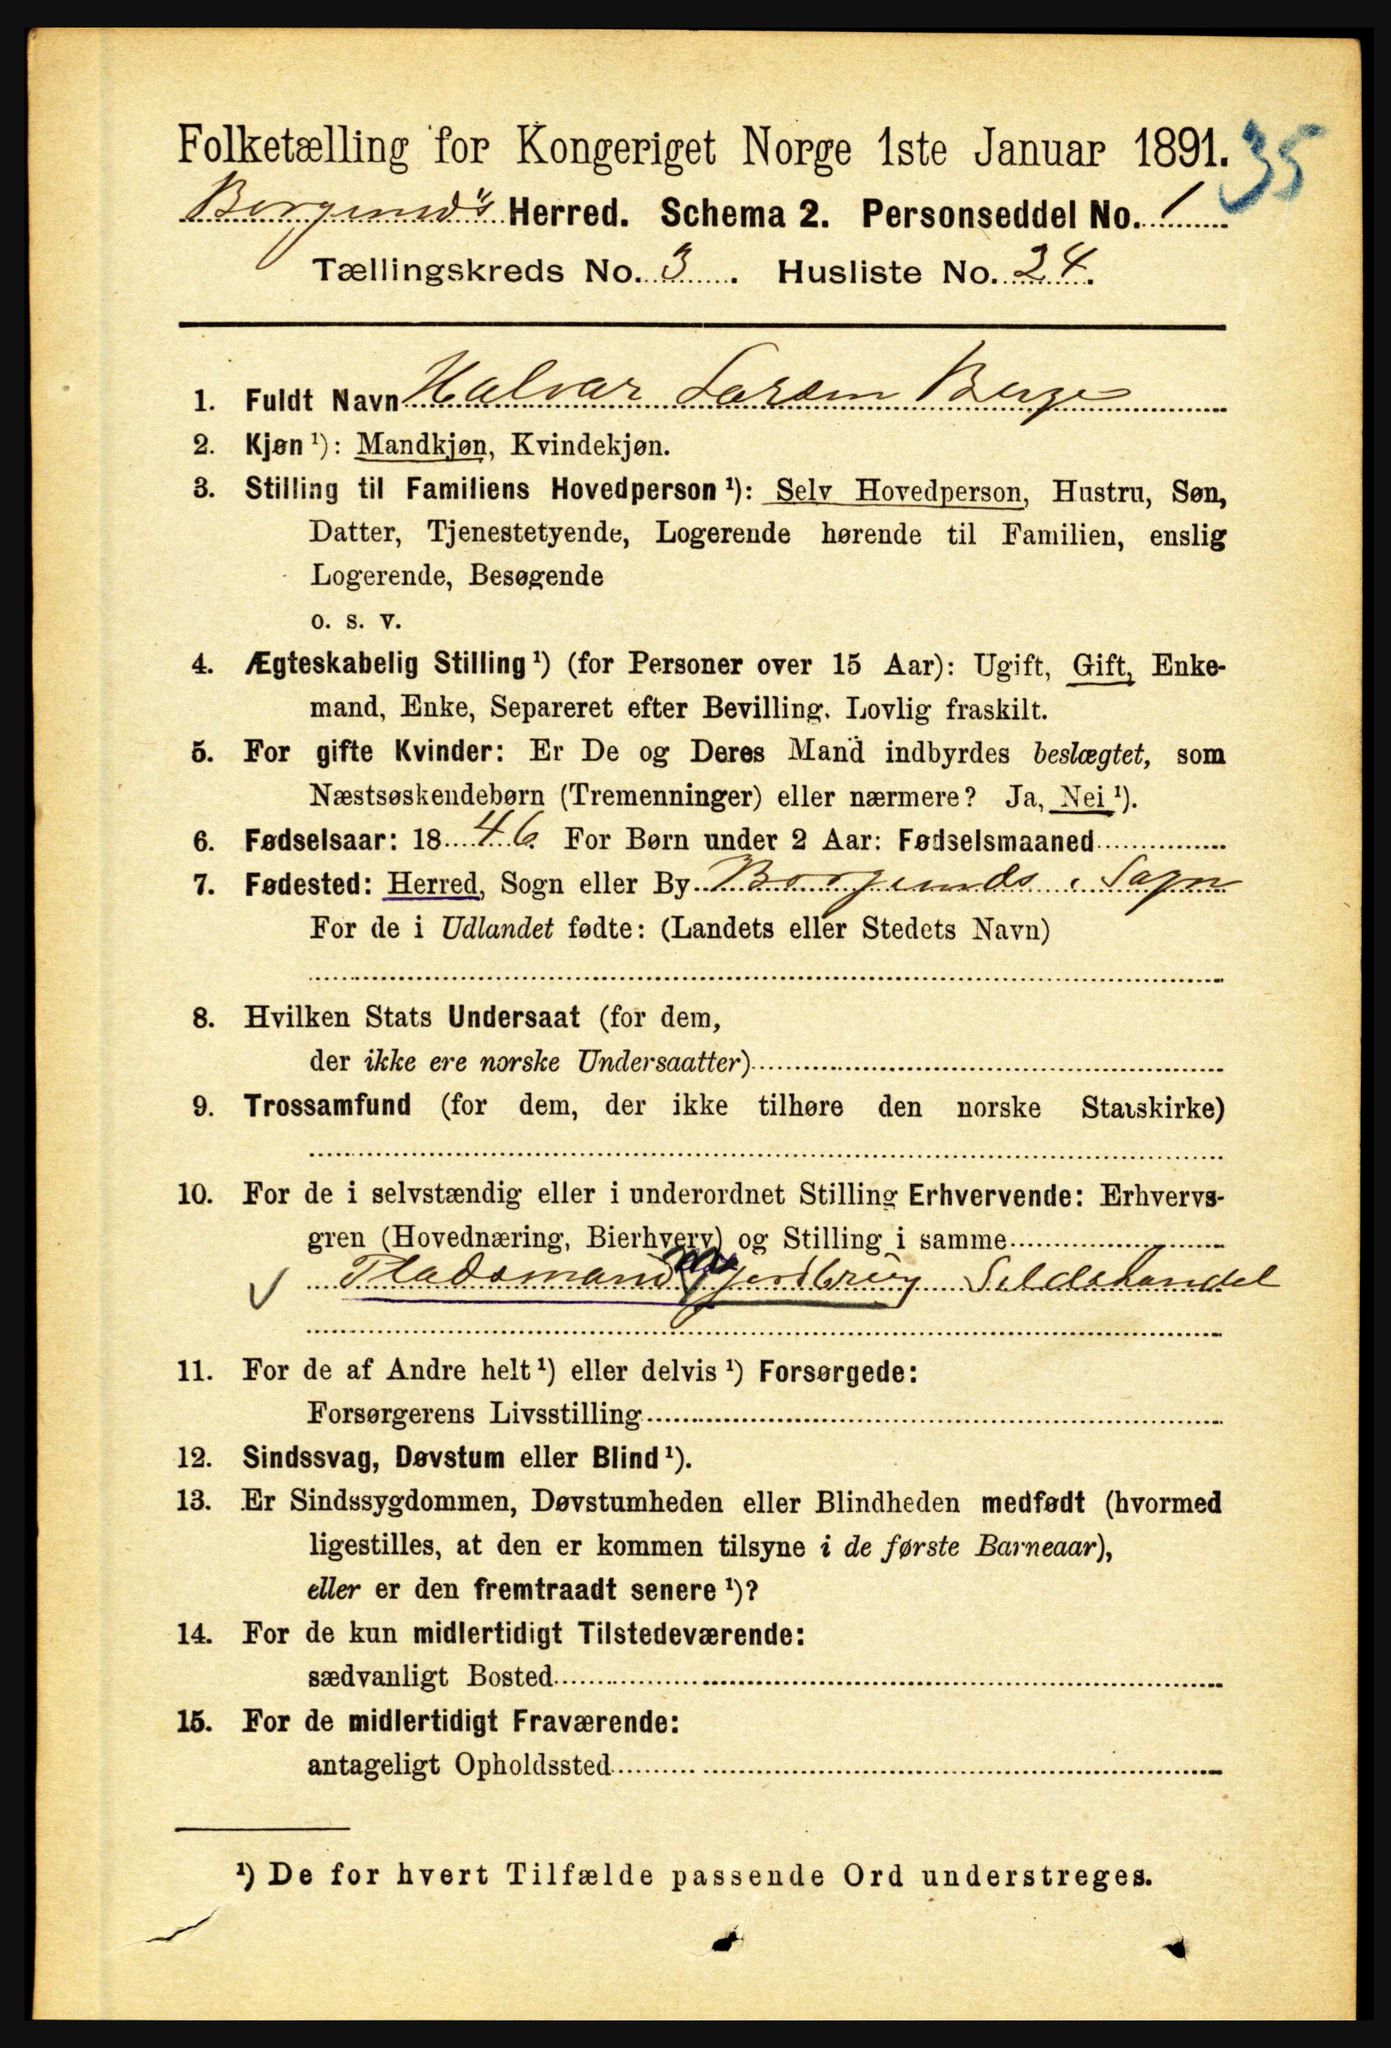 Folketælling for Kongeriget Norge 1ste Januar 1891. 35
Borgund's Herred. Schema 2. Personseddel No. 1
Tællingskreds No. 3. Husliste No. 24.
1. Fuldt Navn Halvar Larsen Berge
2. Kjøn ¹): Mandkjøn, Kvindekjøn.
3. Stilling til Familiens Hovedperson ¹): Selv Hovedperson, Hustru, Søn,
Datter, Tjenestetyende, Logerende hørende til Familien, enslig
Logerende, Besøgende
o. s. v.
4. Ægteskabelig Stilling ¹) (for Personer over 15 Aar): Ugift, Gift, Enke-
mand, Enke, Separeret efter Bevilling. Lovlig fraskilt.
5. For gifte Kvinder: Er De og Deres Mand indbyrdes beslægtet, som
Næstsøskendebørn (Tremenninger) eller nærmere? Ja, Nei ¹).
6. Fødselsaar: 1846. For Børn under 2 Aar: Fødselsmaaned
7. Fødested: Herred, Sogn eller By Borgunds i Sogn
For de i Udlandet fødte: (Landets eller Stedets Navn)
8. Hvilken Stats Undersaat (for dem,
der ikke ere norske Undersaatter)
9. Trossamfund (for dem, der ikke tilhøre den norske Statskirke)
10. For de i selvstændig eller i underordnet Stilling Erhvervende: Erhvervs-
gren (Hovednæring, Bierhverv) og Stilling i samme
Pladsmand m jordbrug Sildehandel
11. For de af Andre helt ¹) eller delvis ¹) Forsørgede:
Forsørgerens Livsstilling
12. Sindssvag, Døvstum eller Blind ¹).
13. Er Sindssygdommen, Døvstumheden eller Blindheden medfødt (hvormed
ligestilles, at den er kommen tilsyne i de første Barneaar),
eller er den fremtraadt senere ¹)?
14. For de kun midlertidigt Tilstedeværende:
sædvanligt Bosted
15. For de midlertidigt Fraværende:
antageligt Opholdssted
¹) De for hvert Tilfælde passende Ord understreges.